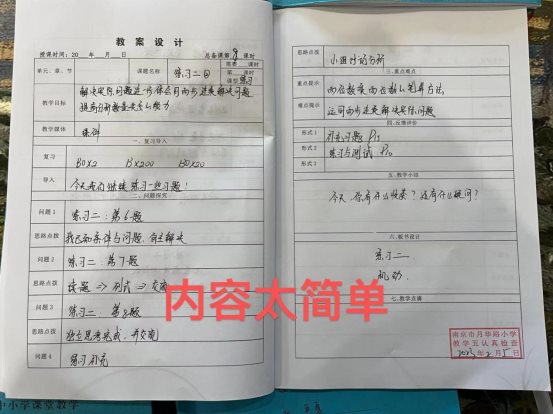 教案设计
授课时间：20 年 月 日
总备课第 8 课时
单元、章、节
课题名称
练习二
需要 课时
第 课时
课型 练习
教学目标
解决实际问题进一步体会用两步连乘解决问题
提高分析数量关系的能力
教学媒体
课件
一、复习导入
复习
130×2
13×200
130×20
导入
今天我们继续练习一些习题！
二、问题探究
问题1
练习二：第6题
思路点拨
找已知条件与问题，自主解决
问题2
练习二：第7题
思路点拨
读题 ⇒ 列式 ⇒ 交流
问题3
练习二：第8题
思路点拨
独立思考完成，并交流
问题4
练习补充
思路点拨
小组讨论分析
三、重点难点
重点提示
两位数乘两位数笔算方法
难点提示
运用两步连乘解决实际问题
四、反馈评价
形式1
补充习题 P15
形式2
练习与测试 P10
形式3
五、教学小结
今天，你有什么收获？还有什么疑问？
六、板书设计
练习二
机动
七、教学点滴
内容太简单
南京市月华路小学
教学五认真检查
2023年2月5日
中小学课堂教学